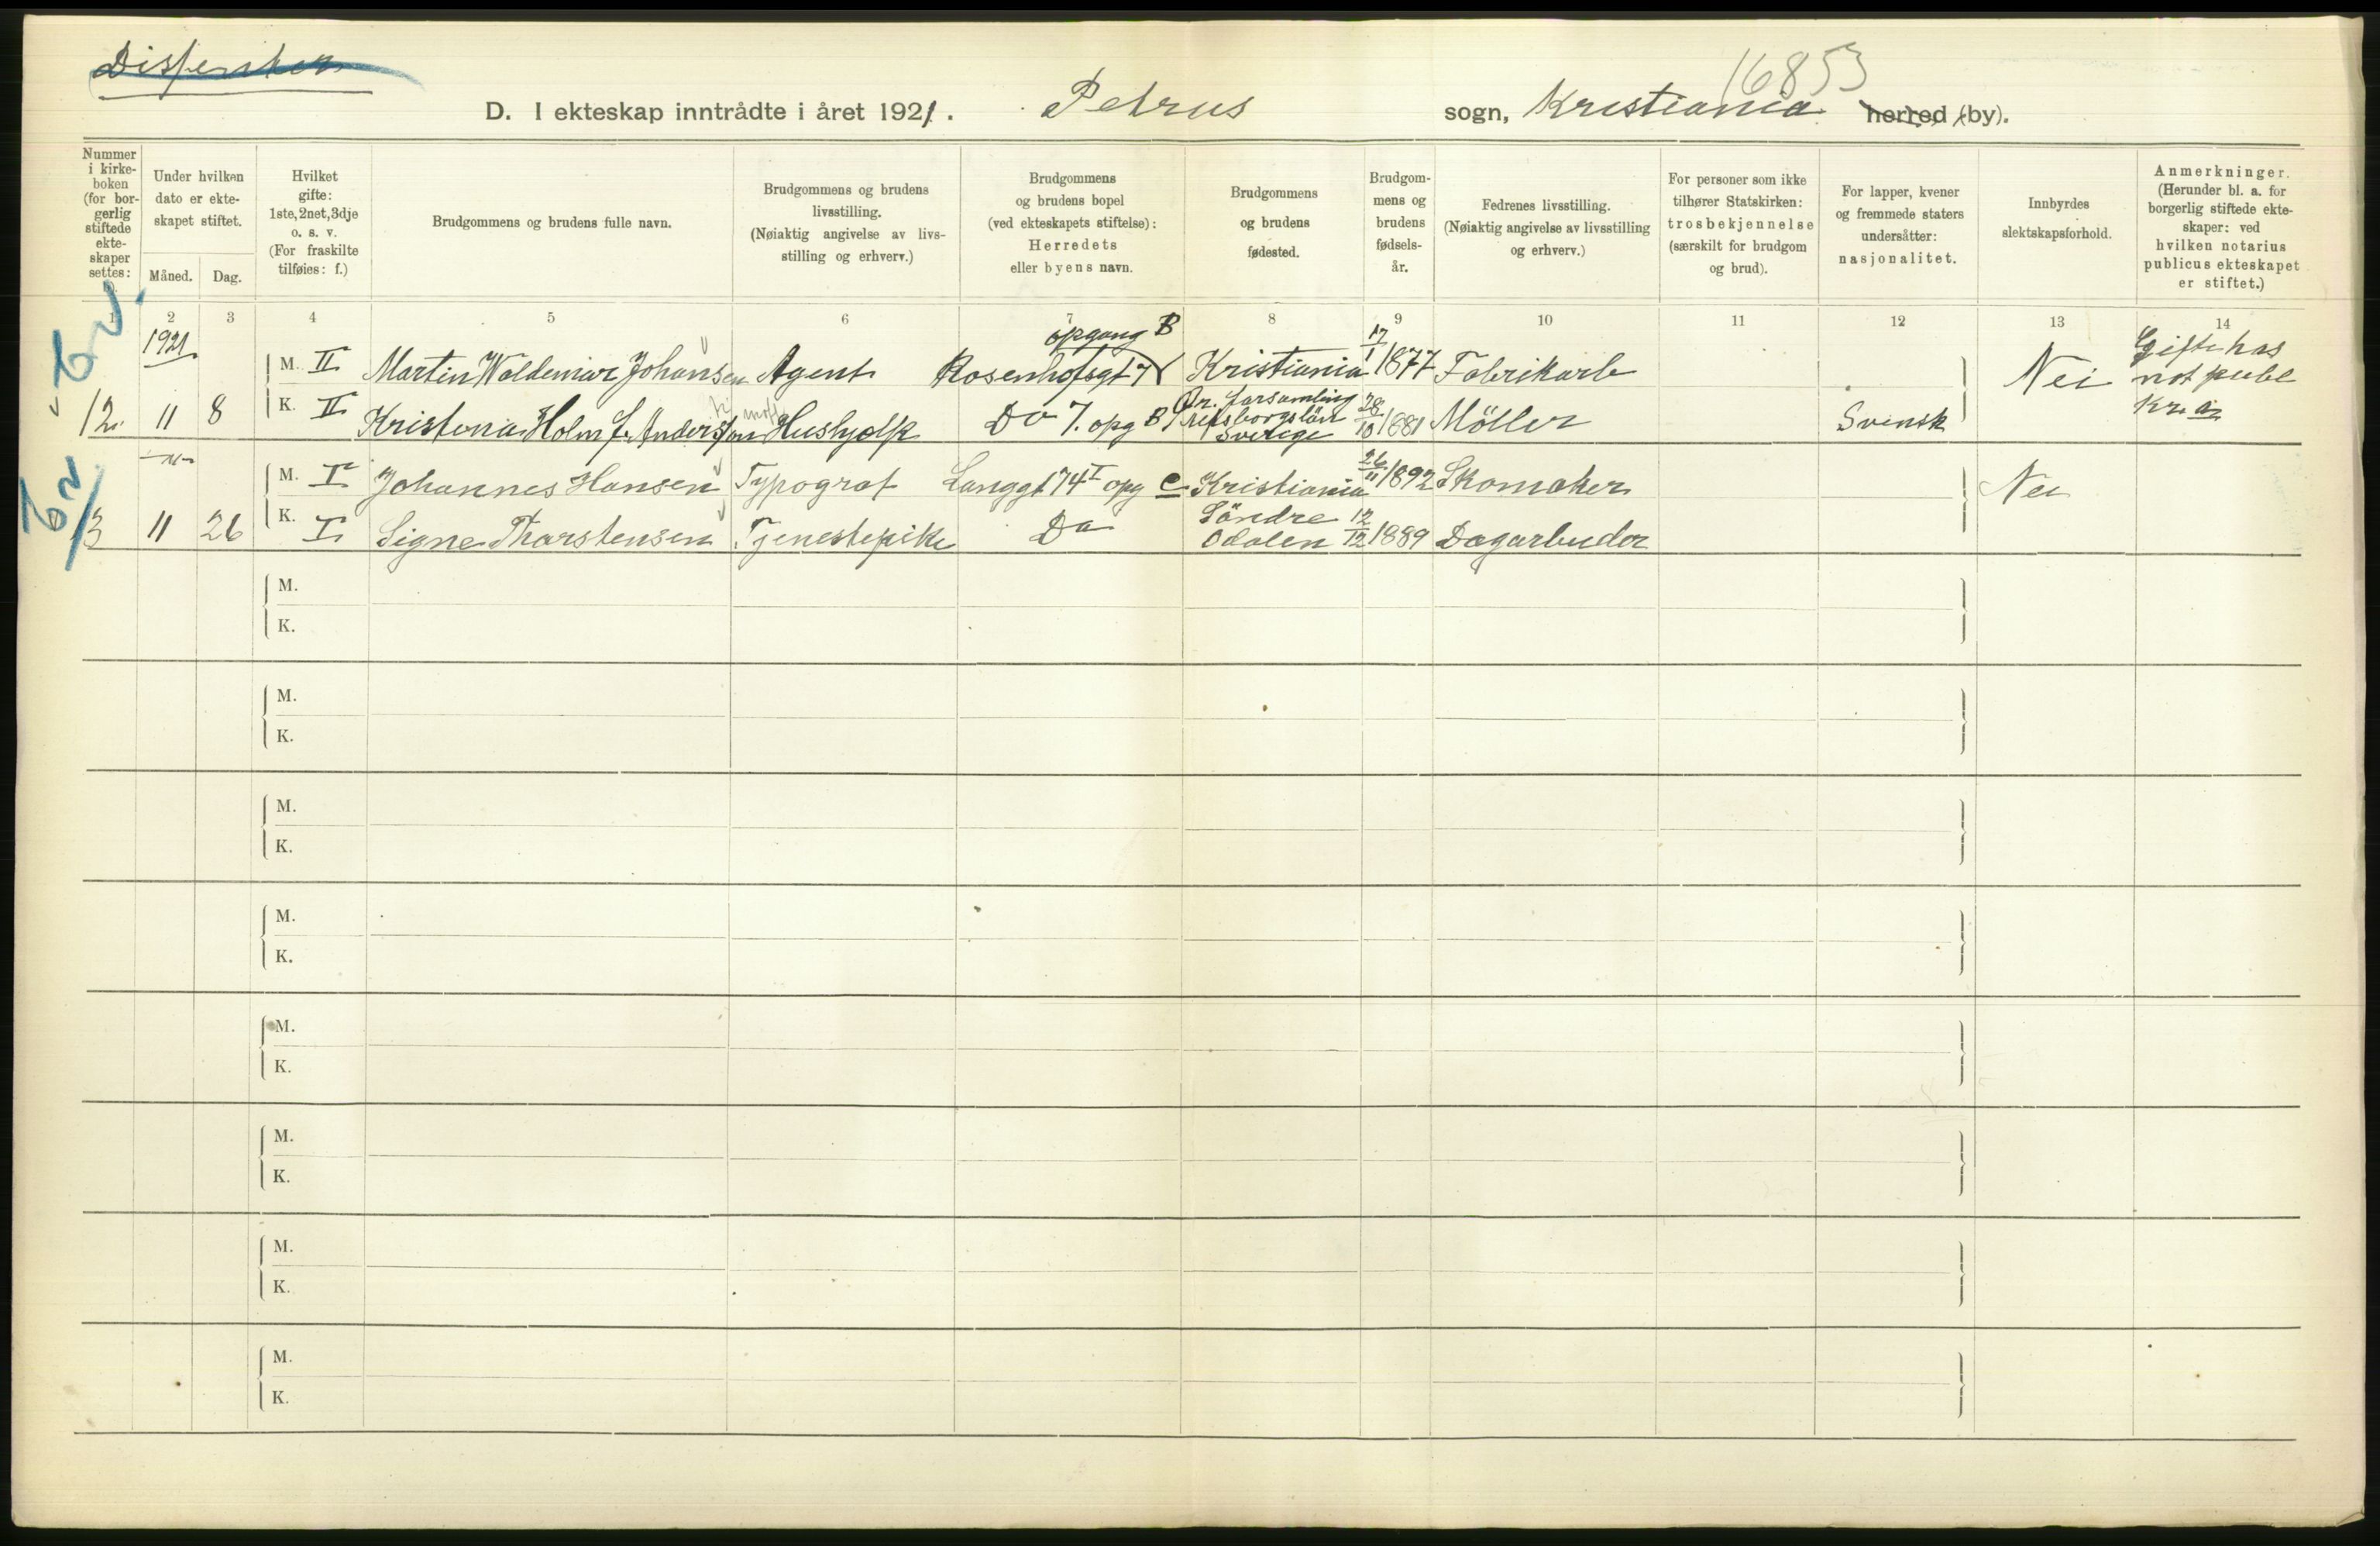 Dispenser
16853
D. I ekteskap inntrådte i året 1921. Petrus sogn, Kristiania herred (by).
Nummer i kirkeboken (for borgerlig stiftede ekteskaper settes:
Under hvilken dato er ekteskapet stiftet.
Måned. Dag.
Hvilket gifte: 1ste, 2net, 3dje o. s. v. (For fraskilte tilføies: f.)
Brudgommens og brudens fulle navn.
Brudgommens og brudens livsstilling. (Nøiaktig angivelse av livsstilling og erhverv.)
Brudgommens og brudens bopel (ved ekteskapets stiftelse): Herredets eller byens navn.
Brudgommens og brudens fødested.
Brudgommens og brudens fødselsår.
Fedrenes livsstilling. (Nøiaktig angivelse av livsstilling og erhverv.)
For personer som ikke tilhører Statskirken: trosbekjennelse (særskilt for brudgom og brud).
For lapper, kvener og fremmede staters undersåtter: nasjonalitet.
Innbyrdes slektskapsforhold.
Anmerkninger. (Herunder bl. a. for borgerlig stiftede ekteskaper: ved hvilken notarius publicus ekteskapet er stiftet.)
1 2 3 4 5 6 7 8 9 10 11 12 13 14
1921
M. II Martin Waldemar Johansen Agent Rosenhofsgt 7 opgang B Kristiania 17/1 1877 Fabrikarb Nei Gifte hos not publ Kr.a
12. 11 8 K. II Kristina Holm f. Anderson Hushjelp Do 7. opg B Or. forsamling Elfsborgslän Sverige 28/10 1881 Möller Svensk
M. I Johannes Hansen Typograf Langgt 74 I opg C Kristiania 26/11 1892 Skomaker Nei
13 11 26 K. I Signe Thorstensen Tjenestepike Do Söndre Odalen 12/12 1889 Dagarbeider
M.
K.
M.
K.
M.
K.
M.
K.
M.
K.
M.
K.
M.
K.
M.
K.